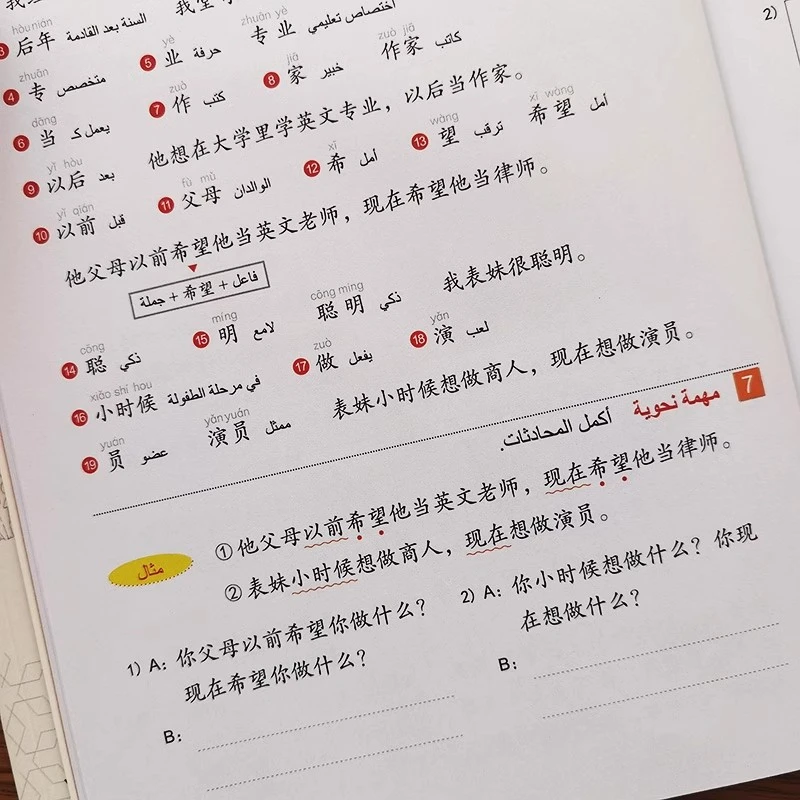 hòunián
后年 السنة بعد القادمة
yè
5 业 حرفة
zhuān yè
专业 اختصاص تعليمي
zhuān
4 专 متخصص
zuò
7 作 كتب
jiā
8 家 خبير
zuò jiā
作家 كاتب
dāng
6 当 يعمل كـ
他想在大学里学英文专业，以后当作家。
yǐ hòu
9 以后 بعد
fù mǔ
11 父母 الوالدان
xī
12 希 أمل
wàng
13 望 ترقب
xī wàng
希望 أمل
yǐ qián
10 以前 قبل
他父母以前希望他当英文老师，现在希望他当律师。
فاعل + 希望 + جملة
cōng
14 聪 ذكي
míng
15 明 لامع
cōng míng
聪明 ذكي
我表妹很聪明。
xiǎo shí hou
16 小时候 في مرحلة الطفولة
zuò
17 做 يفعل
yǎn
18 演 لعب
yuán
19 员 عضو
yǎnyuán
演员 ممثل
表妹小时候想做商人，现在想做演员。
7 مهمة نحوية أكمل المحادثات.
مثال
①他父母以前希望他当英文老师，现在希望他当律师。
②表妹小时候想做商人，现在想做演员。
1) A: 你父母以前希望你做什么？
现在希望你做什么？
B:
2) A: 你小时候想做什么？你现
在想做什么？
B:
2)